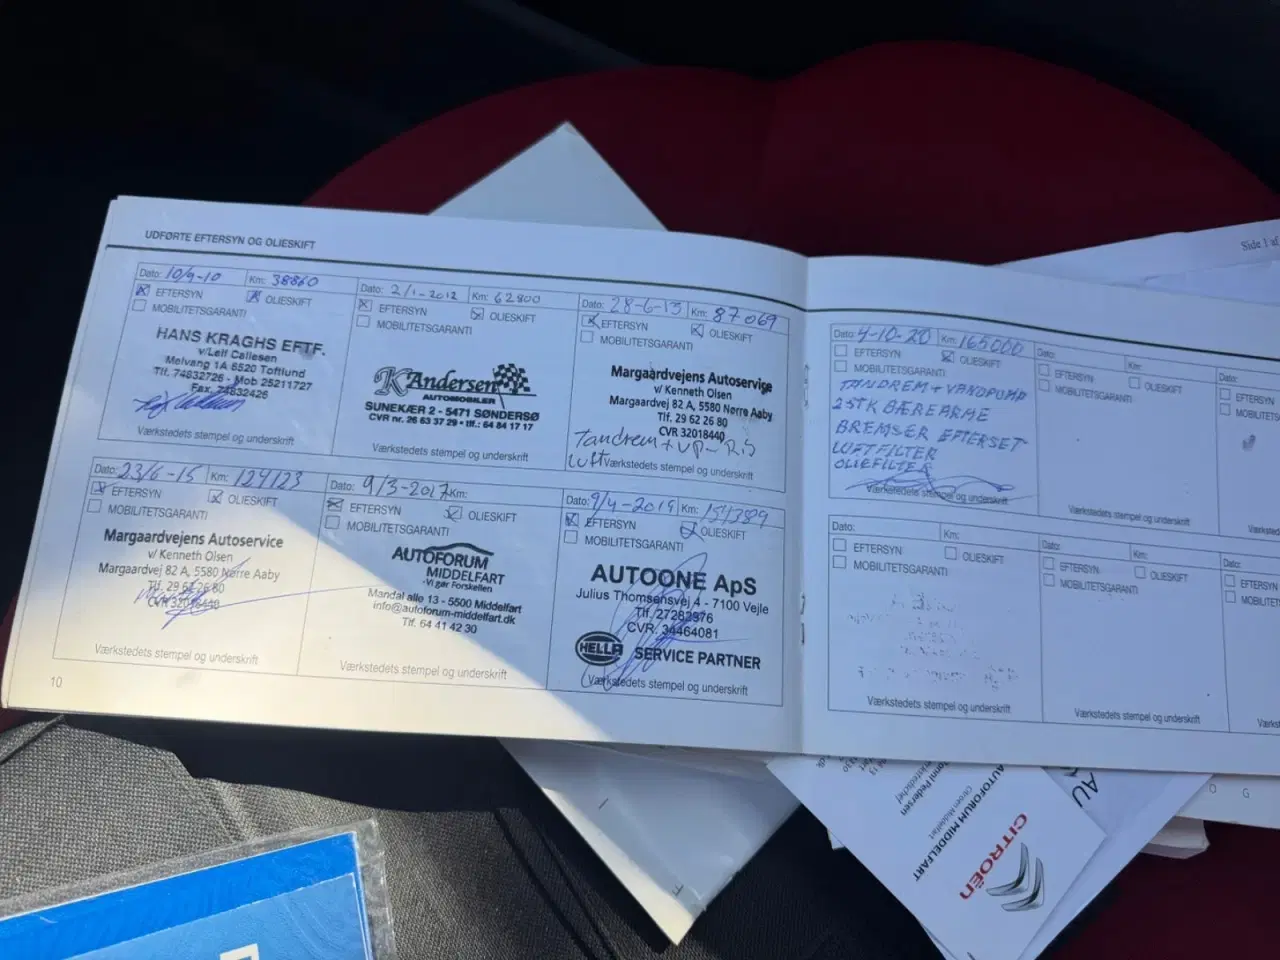 UDFØRTE EFTERSYN OG OLIESKIFT
Dato: 10/9-10 Km: 38860
EFTERSYN OLIESKIFT
MOBILITETSGARANTI
HANS KRAGHS EFTF.
v/Leif Callesen
Melvang 1A 6520 Toftlund
Tlf. 74832726 - Mob 25211727
Fax. 74832426
Værkstedets stempel og underskrift
Dato: 2/1-2012 Km: 62800
EFTERSYN OLIESKIFT
MOBILITETSGARANTI
K Andersen
AUTOMOBILER
SUNEKÆR 2 - 5471 SØNDERSØ
CVR nr. 26 63 37 29 • tlf.: 64 84 17 17
Værkstedets stempel og underskrift
Dato: 28-6-13 Km: 87069
EFTERSYN OLIESKIFT
MOBILITETSGARANTI
Margaardvejens Autoservice
v/ Kenneth Olsen
Margaardvej 82 A, 5580 Nørre Aaby
Tlf. 29 62 26 80
CVR 32018440
Tandrem + VP
Luft
Værkstedets stempel og underskrift
Dato: 23/6-15 Km: 124123
EFTERSYN OLIESKIFT
MOBILITETSGARANTI
Margaardvejens Autoservice
v/ Kenneth Olsen
Margaardvej 82 A, 5580 Nørre Aaby
Tlf. 29 62 26 80
CVR 32018440
Værkstedets stempel og underskrift
Dato: 9/3-2017 Km:
EFTERSYN OLIESKIFT
MOBILITETSGARANTI
AUTOFORUM
MIDDELFART
-Vi gør Forskellen
Mandal alle 13 - 5500 Middelfart
info@autoforum-middelfart.dk
Tlf. 64 41 42 30
Værkstedets stempel og underskrift
Dato: 9/4-2019 Km: 151389
EFTERSYN OLIESKIFT
MOBILITETSGARANTI
AUTOONE ApS
Julius Thomsensvej 4 - 7100 Vejle
Tlf. 27282376
CVR. 34464081
HELLA SERVICE PARTNER
Værkstedets stempel og underskrift
10
Dato: 4-10-20 Km: 165000
EFTERSYN OLIESKIFT
MOBILITETSGARANTI
TANDREM + VANDPUMP
2 STK BÆREARME
BREMSER EFTERSET
LUFTFILTER
OLIEFILTER
Værkstedets stempel og underskrift
Dato: Km:
EFTERSYN OLIESKIFT
MOBILITETSGARANTI
Værkstedets stempel og underskrift
Dato:
EFTERSYN
Dato: Km:
EFTERSYN OLIESKIFT
MOBILITETSGARANTI
Værkstedets stempel og underskrift
Dato: Km:
EFTERSYN OLIESKIFT
MOBILITETSGARANTI
Værkstedets stempel og underskrift
Dato:
EFTERSYN
Side 1 af
CITROËN
AUTOFORUM MIDDELFART
Citroën Middelfart
Pedersen
AU
O G